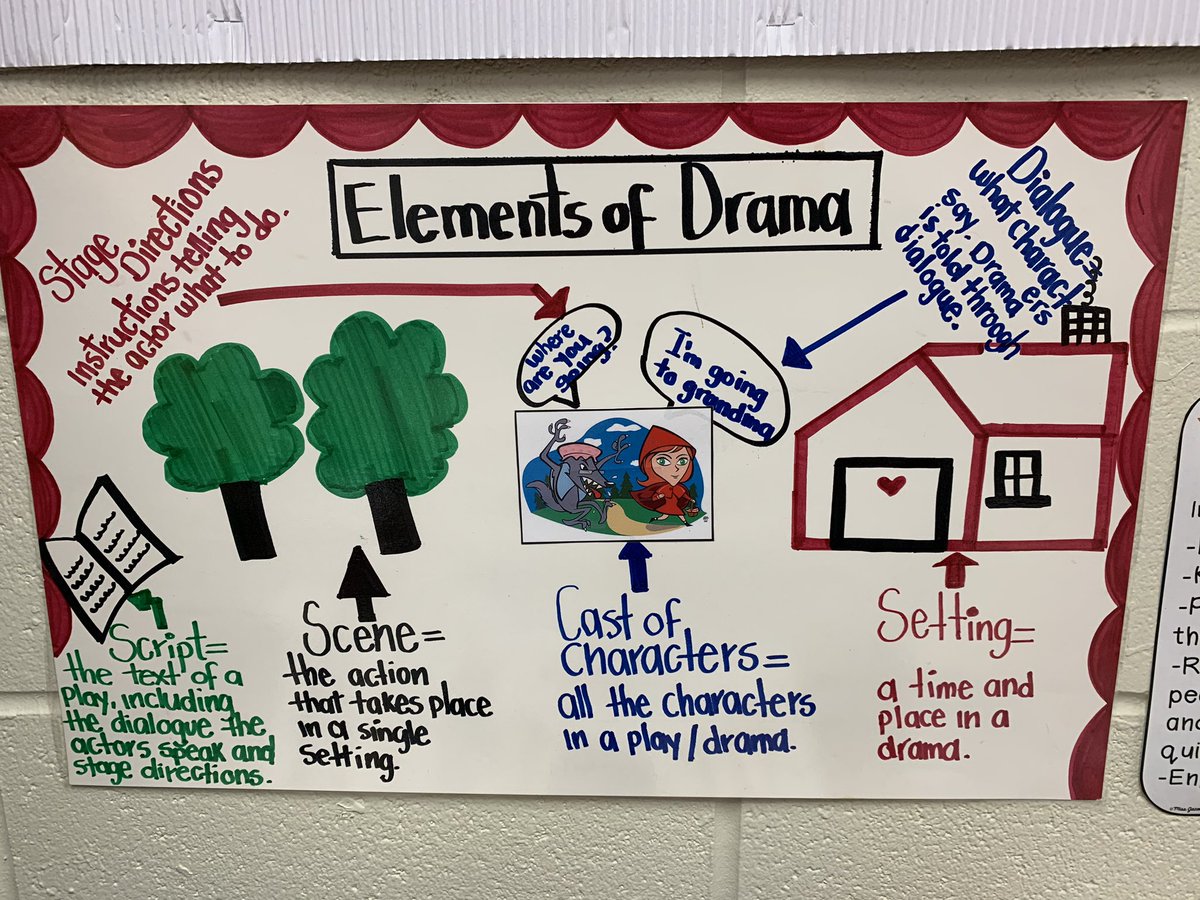 Elements of Drama
Stage
Directions
Instructions telling
the actor what to do.
Where
are you
going?
I'm going
to grandma
Dialogue=
what charact
ers
say. Drama
is told through
dialogue.
Script=
the text of a
play, including
the dialogue the
actors speak and
stage directions.
Scene=
the action
that takes place
in a single
setting.
Cast of
characters=
all the characters
in a play/drama.
Setting=
a time and
place in a
drama.